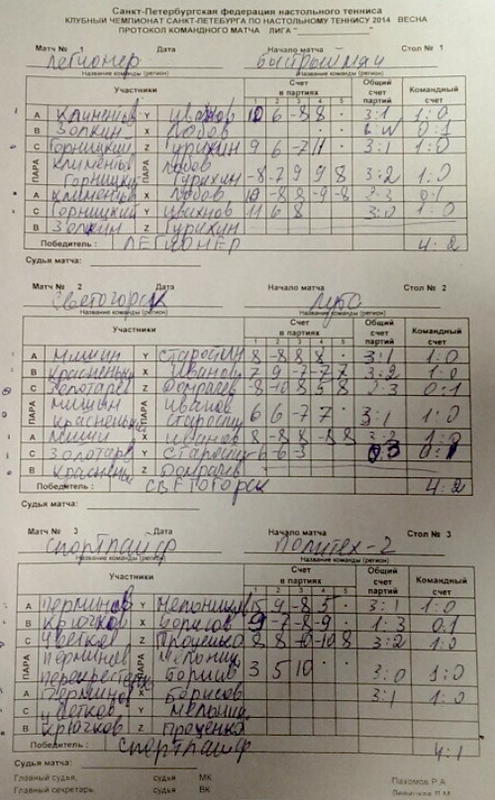 Санкт-Петербургская федерация настольного тенниса
КЛУБНЫЙ ЧЕМПИОНАТ САНКТ-ПЕТЕБУРГА ПО НАСТОЛЬНОМУ ТЕННИСУ 2014 ВЕСНА
ПРОТОКОЛ КОМАНДНОГО МАТЧА ЛИГА "
Матч № Дата Начало матча Стол № 1
Легионер Быстрый мяч
Название команды (регион) Название команды (регион)
Участники Счет в партиях Общий счет партий Командный счет
1 2 3 4 5
A Клименков Y Иванов 10 6 -8 8 3:1 1:0
B Золкин X Лобов 0:1
C Горницкий Z Гурихин 9 6 -7 11 3:1 1:0
ПАРА Клименков ПАРА Лобов
Горницкий Гурихин -8 7 9 9 8 3:2 1:0
A Клименков X Лобов 10 -8 8 -9 -8 2:3 0:1
C Горницкий Y Иванов 11 6 8 3:0 1:0
B Золкин Z Гурихин
Победитель : ЛЕГИОНЕР 4:2
Судья матча:
Матч № 2 Дата Начало матча Стол № 2
Светогорск Луга
Название команды (регион) Название команды (регион)
Участники Счет в партиях Общий счет партий Командный счет
1 2 3 4 5
A Мишин Y Старостин 8 -8 8 8 3:1 1:0
B Красненьк X Иванов 7 9 -7 -7 7 3:2 1:0
C Золотарев Z Домрачев -8 -10 8 5 8 2:3 0:1
ПАРА Мишин ПАРА Иванов
Красненьк Старостин 6 6 -7 7 3:1 1:0
A Мишин X Иванов 8 -8 8 -8 8 3:2 1:0
C Золотарев Y Старостин -6 -6 -3 0:3 0:1
B Красненьк Z Домрачев
Победитель : СВЕТОГОРСК 4:2
Судья матча:
Матч № 3 Дата Начало матча Стол № 3
Спортлайф Политех-2
Название команды (регион) Название команды (регион)
Участники Счет в партиях Общий счет партий Командный счет
1 2 3 4 5
A Перминов Y 5 9 -8 5 3:1 1:0
B Крючков X Борисов 9 -7 -8 -9 1:3 0:1
C Цветков Z Проценко 8 8 -10 -10 8 3:2 1:0
ПАРА Перминов ПАРА
3 5 10 3:0 1:0
A Перминов X Борисов 3:1 1:0
C Цветков Y
B Крючков Z Проценко
Победитель : Спортлайф 4:1
Судья матча:
Главный судья, судья МК Пахомов Р.А.
Главный секретарь. судья ВК